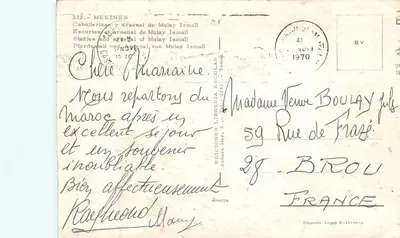 212.- MEKINES
Caballerizas y Arsenal de Mulay Ismail
Ecuries et Arsenal de Mulay Ismail
Stables and Arsenal of Mulay Ismail
Pferdestall und Arsenal von Mulay Ismail
1970
BV
Chère Marraine.
Nous repartons du
Maroc après un
excellent séjour
et un souvenir
inoubliable.
Bien affectueusement
Raymond
EDICIONES LIBRERIA ESCOLAR
Madame Veuve BOULAY
59 Rue de Frazé
28 - BROU
FRANCE